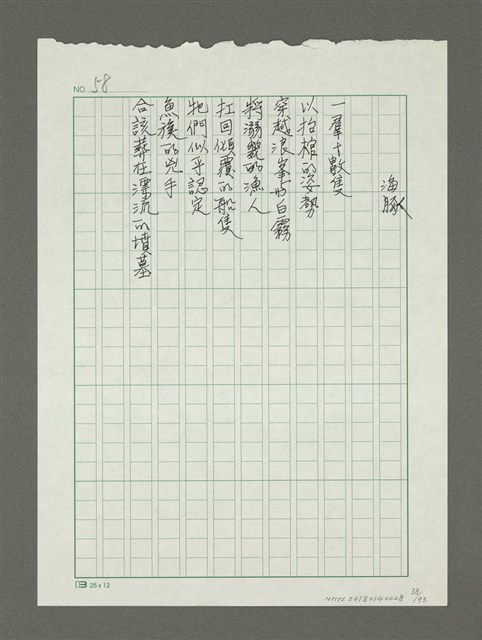 NO. 58
海豚
一羣十數隻
以抬棺的姿勢
穿越浪峯與白霧
將溺斃的漁人
扛回傾覆的船隻
牠們似乎認定
魚族的兇手
合該葬在漂流的墳墓
25 x 12
NMTL20180140028
58/93